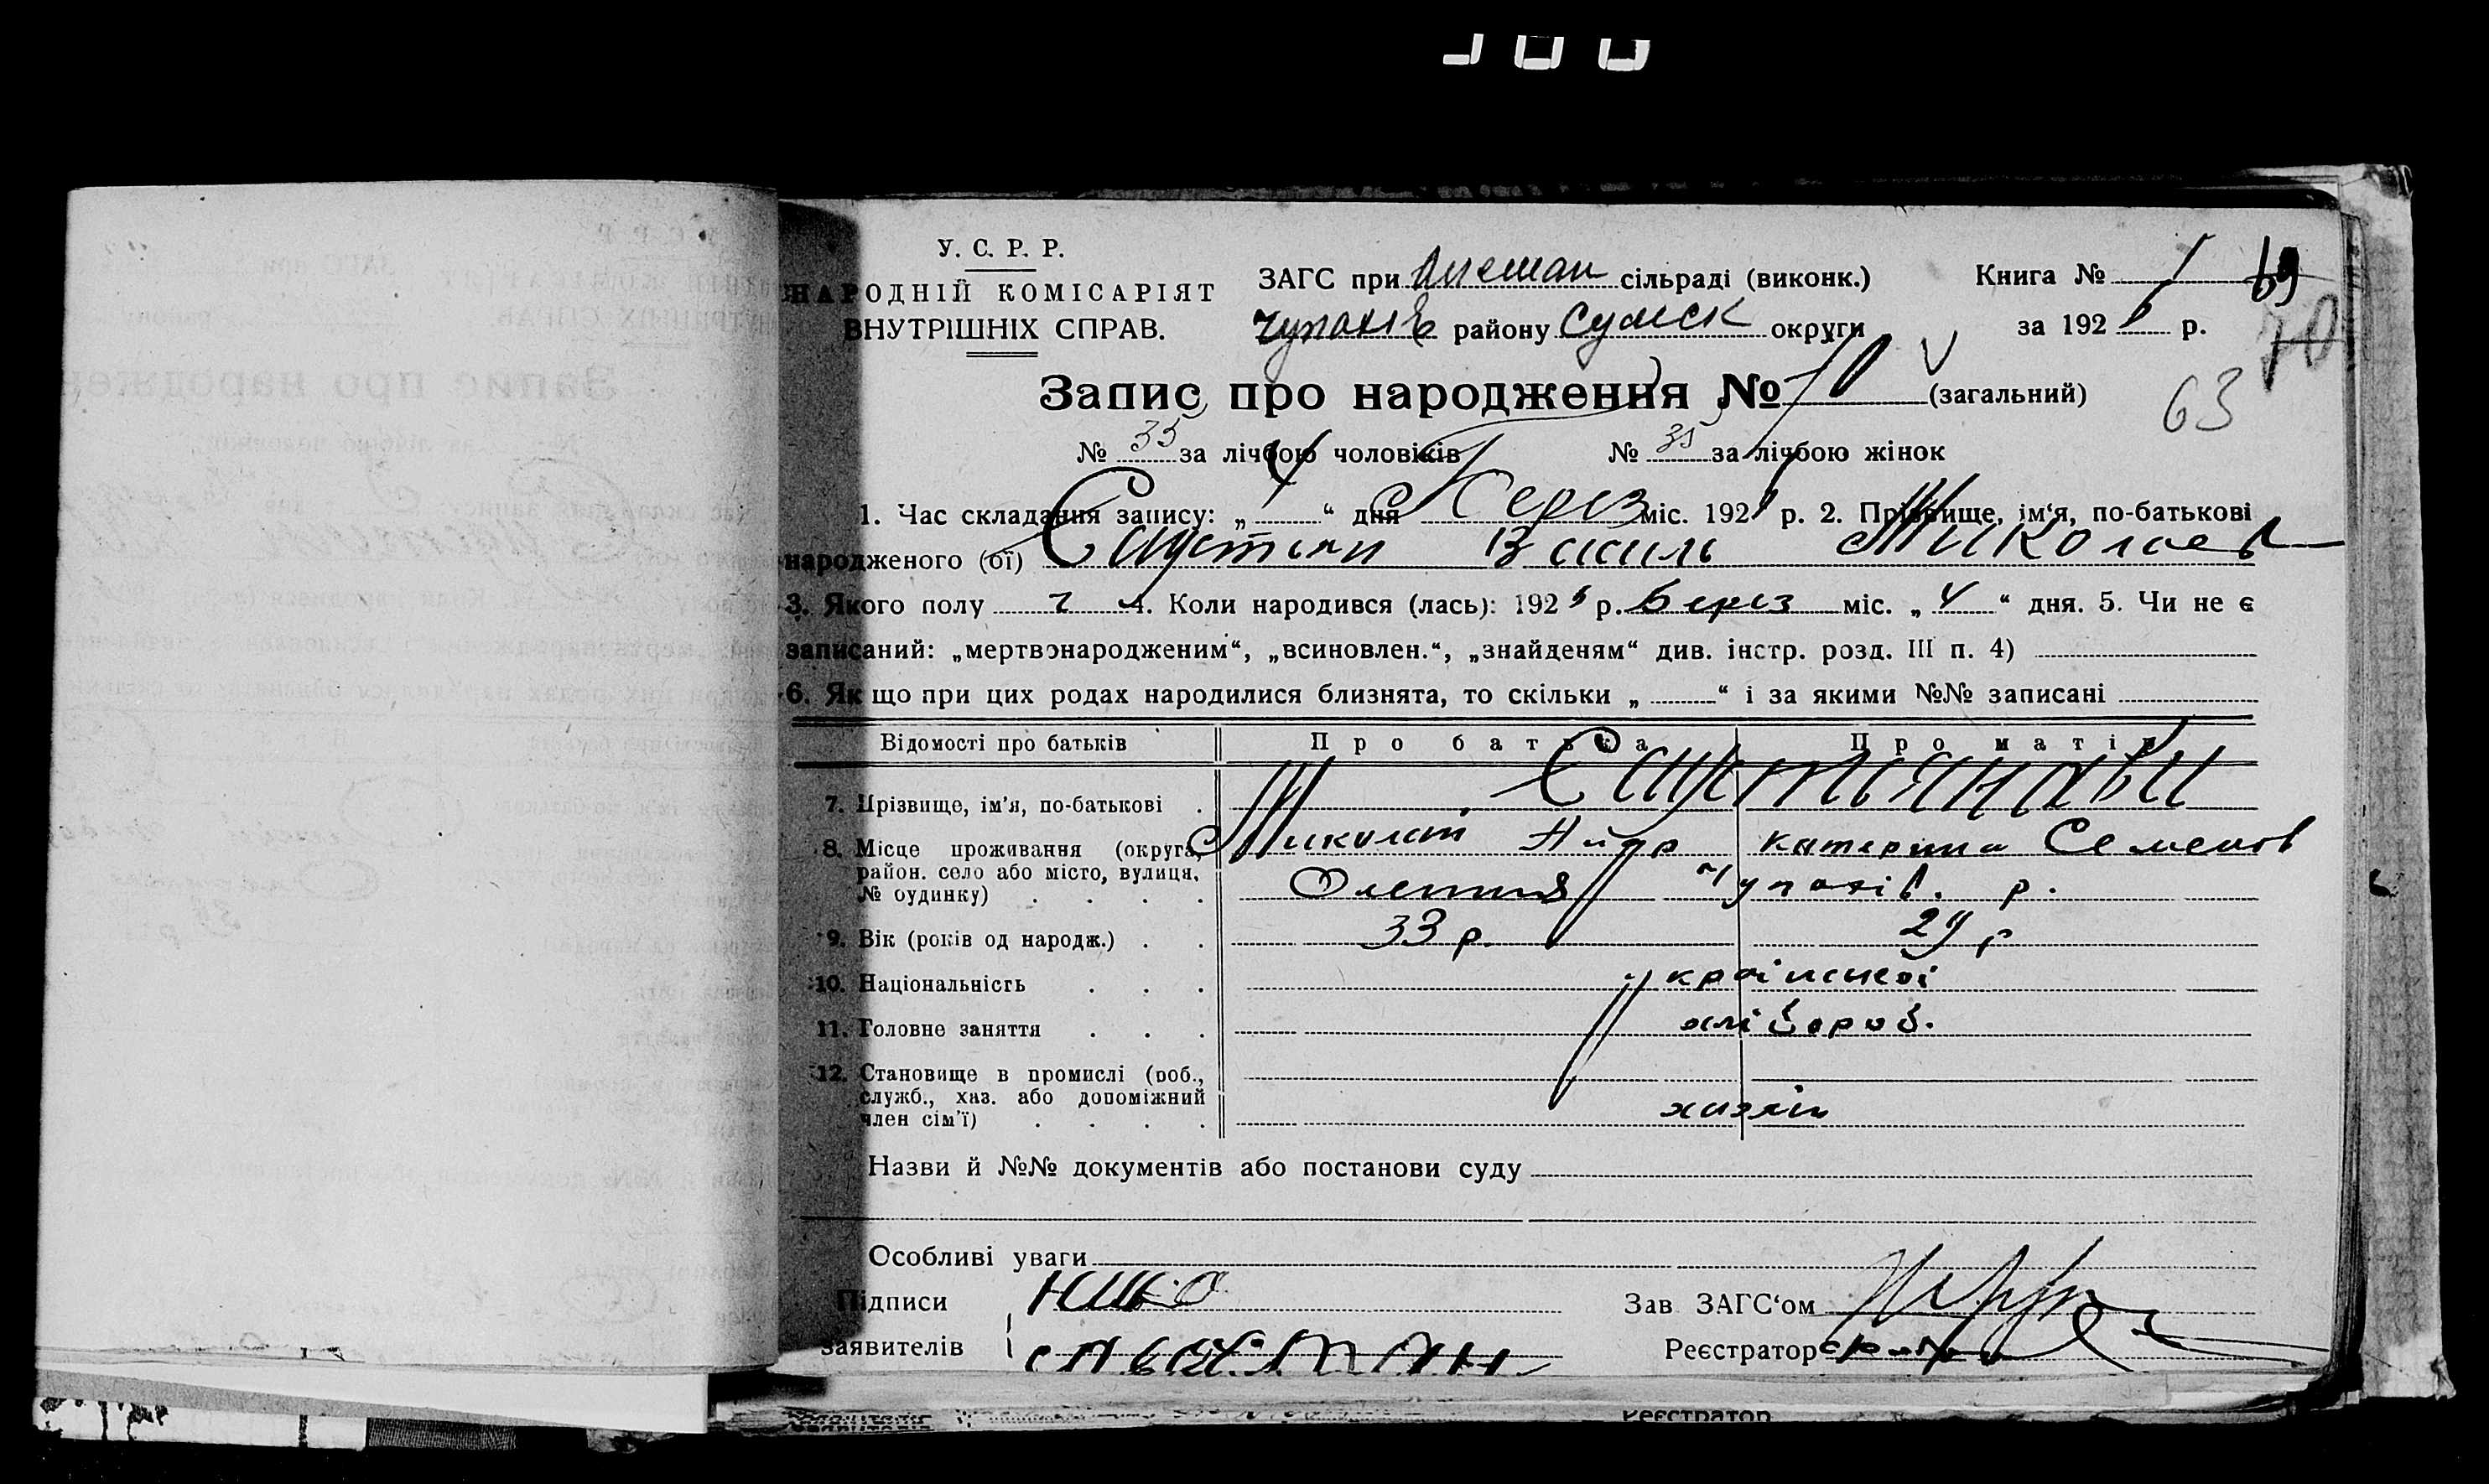 У. С. Р. Р.
НАРОДНІЙ КОМІСАРІЯТ
ВНУТРІШНІХ СПРАВ.
ЗАГС при сільраді (виконк.)
Чупахів району Сумск округи
Книга № 1 69
за 192 р. 70
Запис про народження № 70 (загальний)
63
№ 35 за лічбою чоловіків № 35 за лічбою жінок
1. Час складання запису: „ 4 “ дня Берез міс. 192 р. 2. Прізвище, ім‘я, по-батькові
народженого (ої) Василь Миколаев
3. Якого полу ч 4. Коли народився (лась): 192 р. Берез міс. „ 4 “ дня. 5. Чи не є
записаний: „мертвонародженим“, „всиновлен.“, „знайденям“ див. інстр. розд. III п. 4)
6. Якщо при цих родах народилися близнята, то скільки „ “ і за якими №№ записані
Відомості про батьків Про батька Про матір
7. Прізвище, ім’я, по-батькові
8. Місце проживання (округа, район. село або місто, вулиця, № будинку)
Миколай Катерина Семенов
Чупахів. р.
9. Вік (років од народж.) 33 р. 29 р
10. Національність україиської
11. Головне заняття хлібороб.
12. Становище в промислі (роб., служб., хаз. або допоміжний член сім’ї) хазяїн
Назви й №№ документів або постанови суду
Особливі уваги
Підписи Зав ЗАГС‘ом
заявителів Реєстратор
Реєстратор